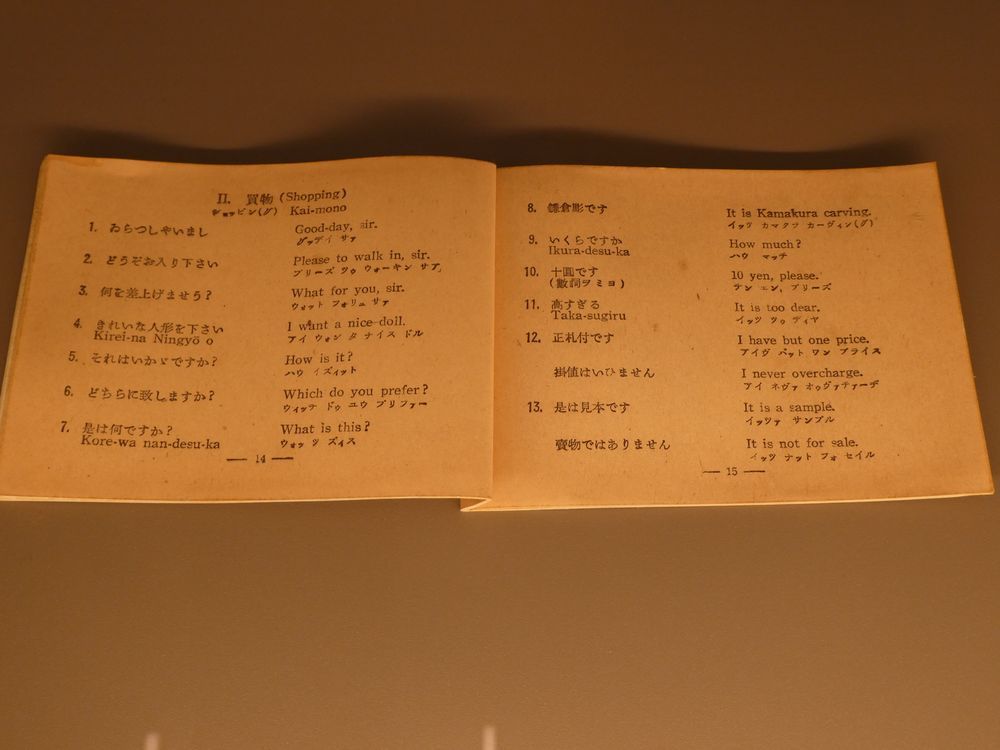 II. 買物 (Shopping)
ショッピン(グ) Kai-mono
1. ゐらつしやいまし Good-day, sir.
グッデイ サァ
2. どうぞお入り下さい Please to walk in, sir.
プリーズ ツゥ ウォーキン サァ
3. 何を差上げませう? What for you, sir.
ウォット フォリュ サァ
4. きれいな人形を下さい I want a nice doll.
Kirei-na Ningyō o アイ ウォン タ ナイス ドル
5. それはいかゞですか? How is it?
ハウ イズィット
6. どちらに致しますか? Which do you prefer?
ウィッチ ドゥ ユウ プリファー
7. 是は何ですか? What is this?
Kore-wa nan-desu-ka ウォッ ツ ズィス
— 14 —
8. 鎌倉彫です It is Kamakura carving.
イッツ カマクラ カーヴィン(グ)
9. いくらですか How much?
Ikura-desu-ka ハウ マッチ
10. 十圓です 10 yen, please.
(數詞ヲミヨ) テン エン, プリーズ
11. 高すぎる It is too dear.
Taka-sugiru イッツ ツゥ ディヤ
12. 正札付です I have but one price.
アイヴ バット ワン プライス
掛値はいひません I never overcharge.
アイ ネヴァ オゥヴァチァーヂ
13. 是は見本です It is a sample.
イッツァ サンプル
賣物ではありません It is not for sale.
イッツ ナット フォ セイル
— 15 —